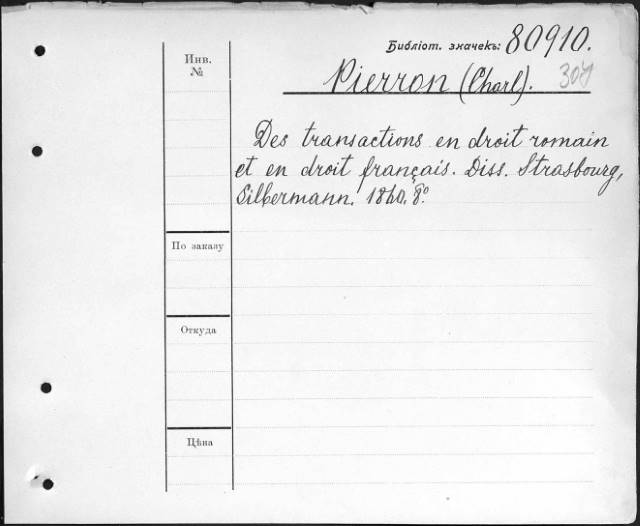 Библіот. значекъ: 80910.
Инв. №
Pierron (Charl).
Des transactions en droit romain
et en droit français. Diss. Strasbourg,
Silbermann. 1860. 8º.
По заказу
Откуда
Цѣна